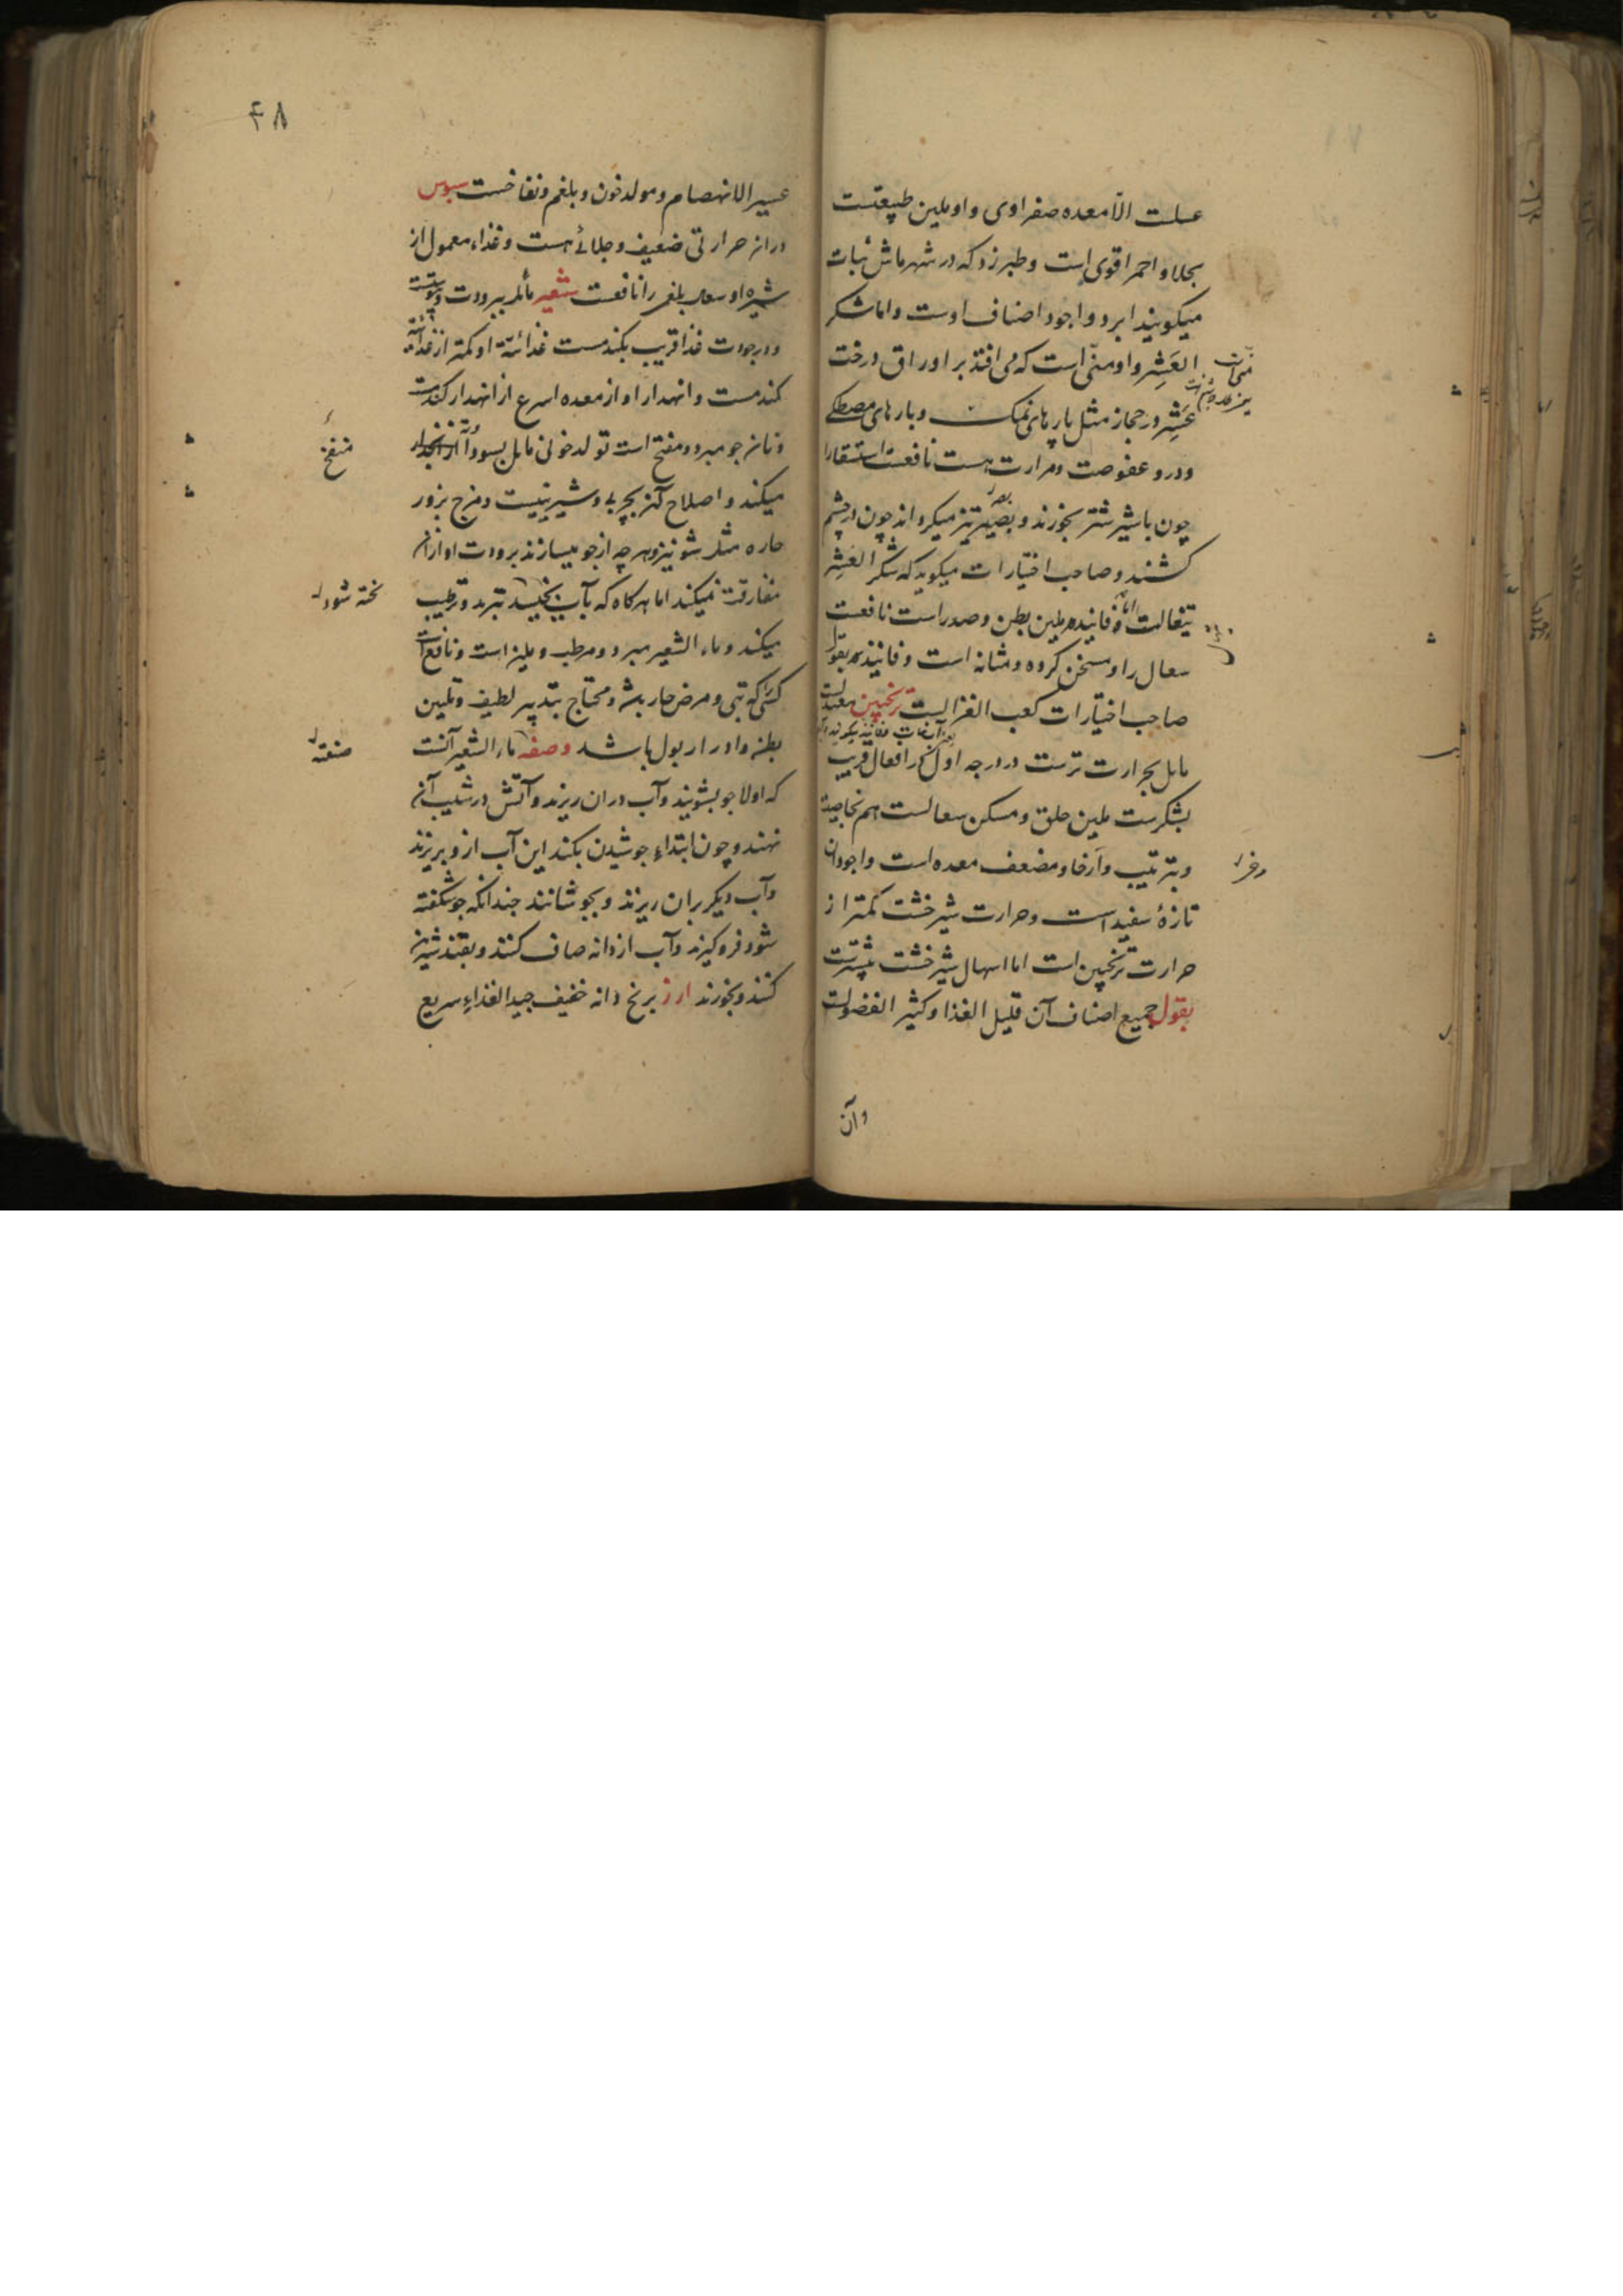 عسلت الا معده صفراوی و او ملین طبیعتست
بجلا و احمر اقوی است و طبرزد که در شهر ماش نبات
میکویند ابرد و اجود اصناف اوست و اما شکر
العَشِر و او منّی است که می افتد بر اوراق درخت
عَشِر در حجاز مثل پارهای نمک و پارهای مصطکی
و درو عفوصت و مرارت هست نافعست استسقا را
چون با شیر شتر بخورند و بصر تیز میکرداند چون در چشم
کشند و صاحب اختیارات میکوید که شکر العَشِر
تیغالست اما فانید ملین بطن و صدر است نافعست
سعال را و مسخن کرده و مثانه است و فانید بقول
صاحب اختیارات کعب الغزالیست ترنجبین معتدلست
مایل بحرارت ترست در درجه اول در افعال قریب
بشکرست ملین حلق و مسکن سعالست هم بخاصیة
و بترتیب و ارخا و مضعف معده است و اجود آن
تازهٔ سفید است و حرارت شیرخشت کمتر از
حرارت ترنجبین است اما اسهال شیرخشت بیشترست
بقول جمیع اصناف آن قلیل الغذا و کثیر الفضولست
و آن
۴۸
عسیر الانهضام و مولد خون و بلغم و نفاخست سبوس
در آن حرارتی ضعیف و جلائی هست و غذاء معمول از
شیره او سعال بلغمی را نافعست شعیر مائل ببرودت و یبوست
و در جودت غذا قریب بکندمست غذائیّة او کمتر از غذائیة
کندمست و انهدار او از معده اسرع از انهدار کندمست
و نان جو مبرد و منفخ است تولد خونی مایل بسودا از
میکند و اصلاح آن بچربی و شیرینیست و مزج بزور
حاره مثل شونیز و هر چه از جو میسازند برودت او از ان
مفارقت نمیکند اما هر کاه که بآب بخیسد تبرید و ترطیب
میکند و ماء الشعیر مبرد و مرطب و ملین است و نافع است
کسی که تبی و مرض حار باشد و محتاج بتدبیر لطیف و تلیین
بطن و ادرار بول باشد و صفه ماء الشعیر آنست
که اولا جو بشویند و آب در ان ریزند و آتش در شیب آن
نهند و چون ابتداء جوشیدن بکند این آب از و بریزند
و آب دیکر بران ریزند و بجوشانند چندانکه جو شکفته
شود فرو کیرند و آب از دانه صاف کنند و بقند شیرین
کنند و بخورند ارز برنج دانه خفیف جید الغذاء سریع
منفخ
پخته شود
صنعته